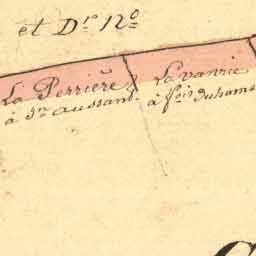 et Dr. 12º
La Perrière
à Jn. aussant
La vanrie
à fois. duham